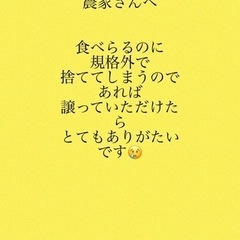 農家さんへ
食べらるのに
規格外で
捨ててしまうので
あれば
譲っていただけた
ら
とてもありがたい
です😢